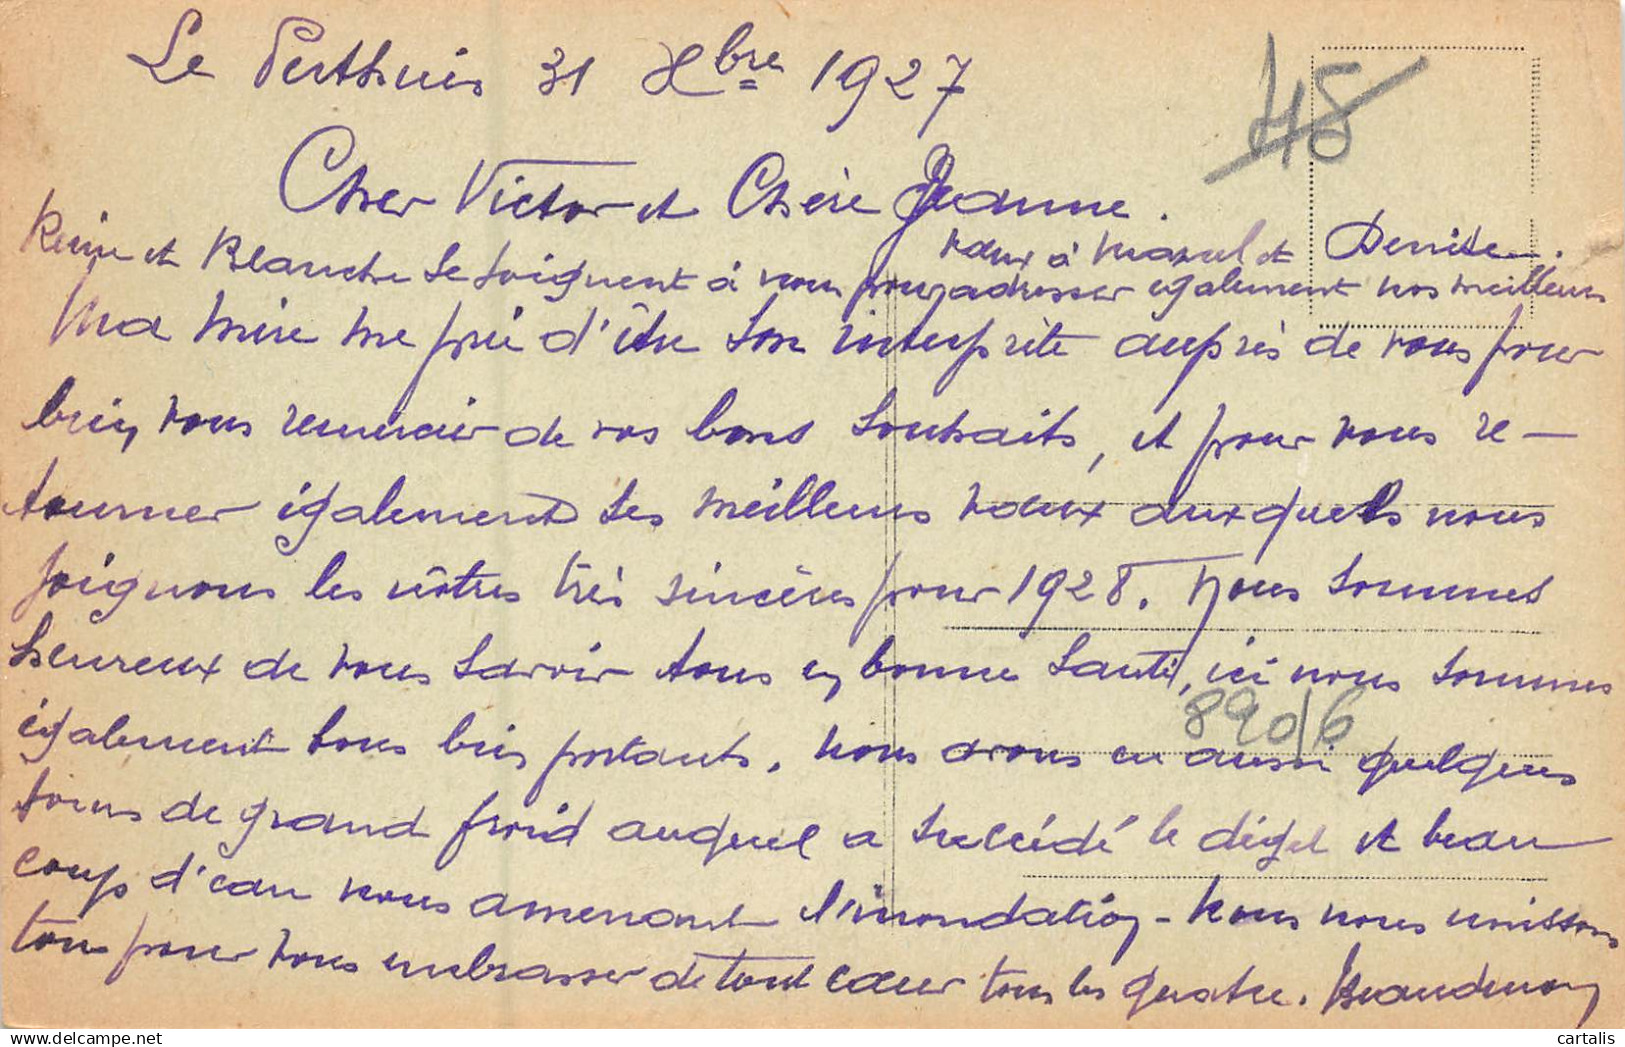 Le Perthuis 31 Xbre 1927
48
Cher Victor et Chère Jeanne.
Reine et Blanche se joignent à nous pour adresser également nos meilleurs
vœux à Marcel et Denise.
Ma mère me prie d'être son interprète auprès de vous pour
bien vous remercier de vos bons souhaits, et pour vous re-
tourner également ses meilleurs vœux auxquels nous
joignons les nôtres très sincères pour 1928. Nous sommes
heureux de vous savoir tous en bonne santé, ici nous sommes
89016
également tous bien portants. Nous avons eu aussi quelques
jours de grand froid auquel a succédé le dégel et beau
coup d'eau nous amenant l'inondation - Nous nous unissons
tous pour vous embrasser de tout cœur tous les quatre.
cartalis